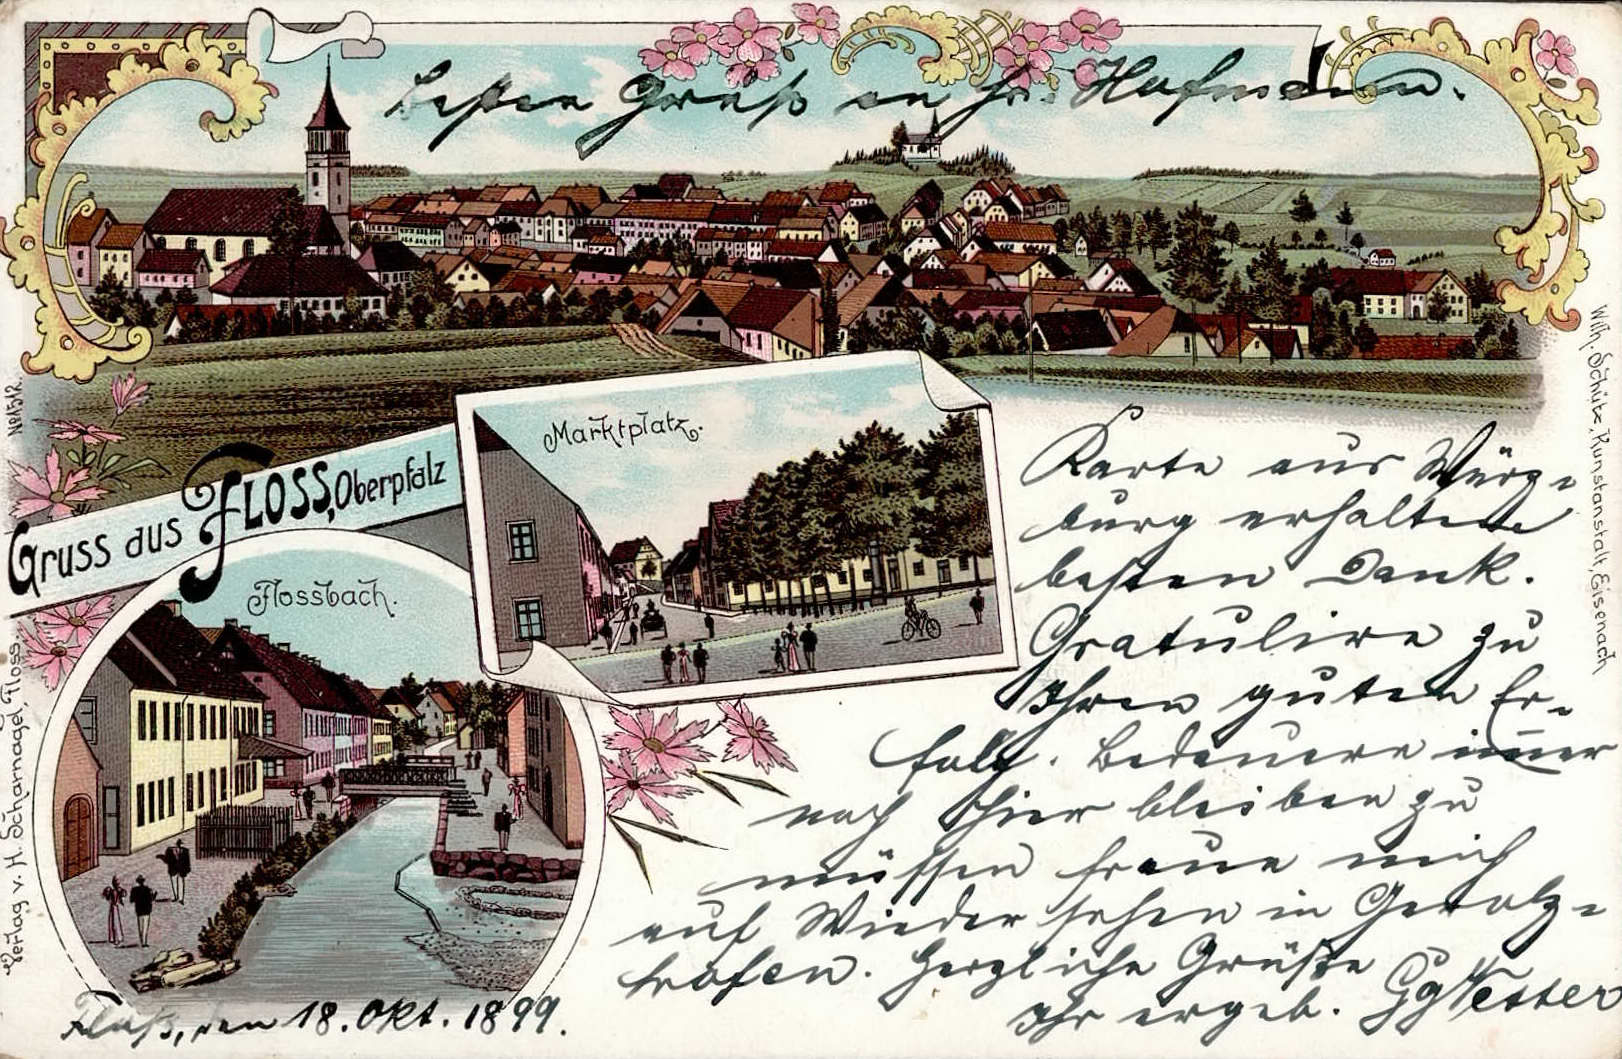 besten Gruß an Hr. Hofmann.
No 1512.
Gruss aus FLOSS, Oberpfalz
Marktplatz.
Flossbach.
Verlag v. H. Scharnagel, Floss.
Wilh. Schütz, Kunstanstalt, Eisenach
Karte aus Würz-
burg erhalten
besten Dank.
Gratulire zu
Ihren guten Er-
folg. Bedeuere immer
noch hier bleiben zu
müssen freue mich
auf Wieder sehen in Gerolz-
hofen. Herzliche Grüße
Ihr ergeb.
Floß, den 18. Okt. 1899.